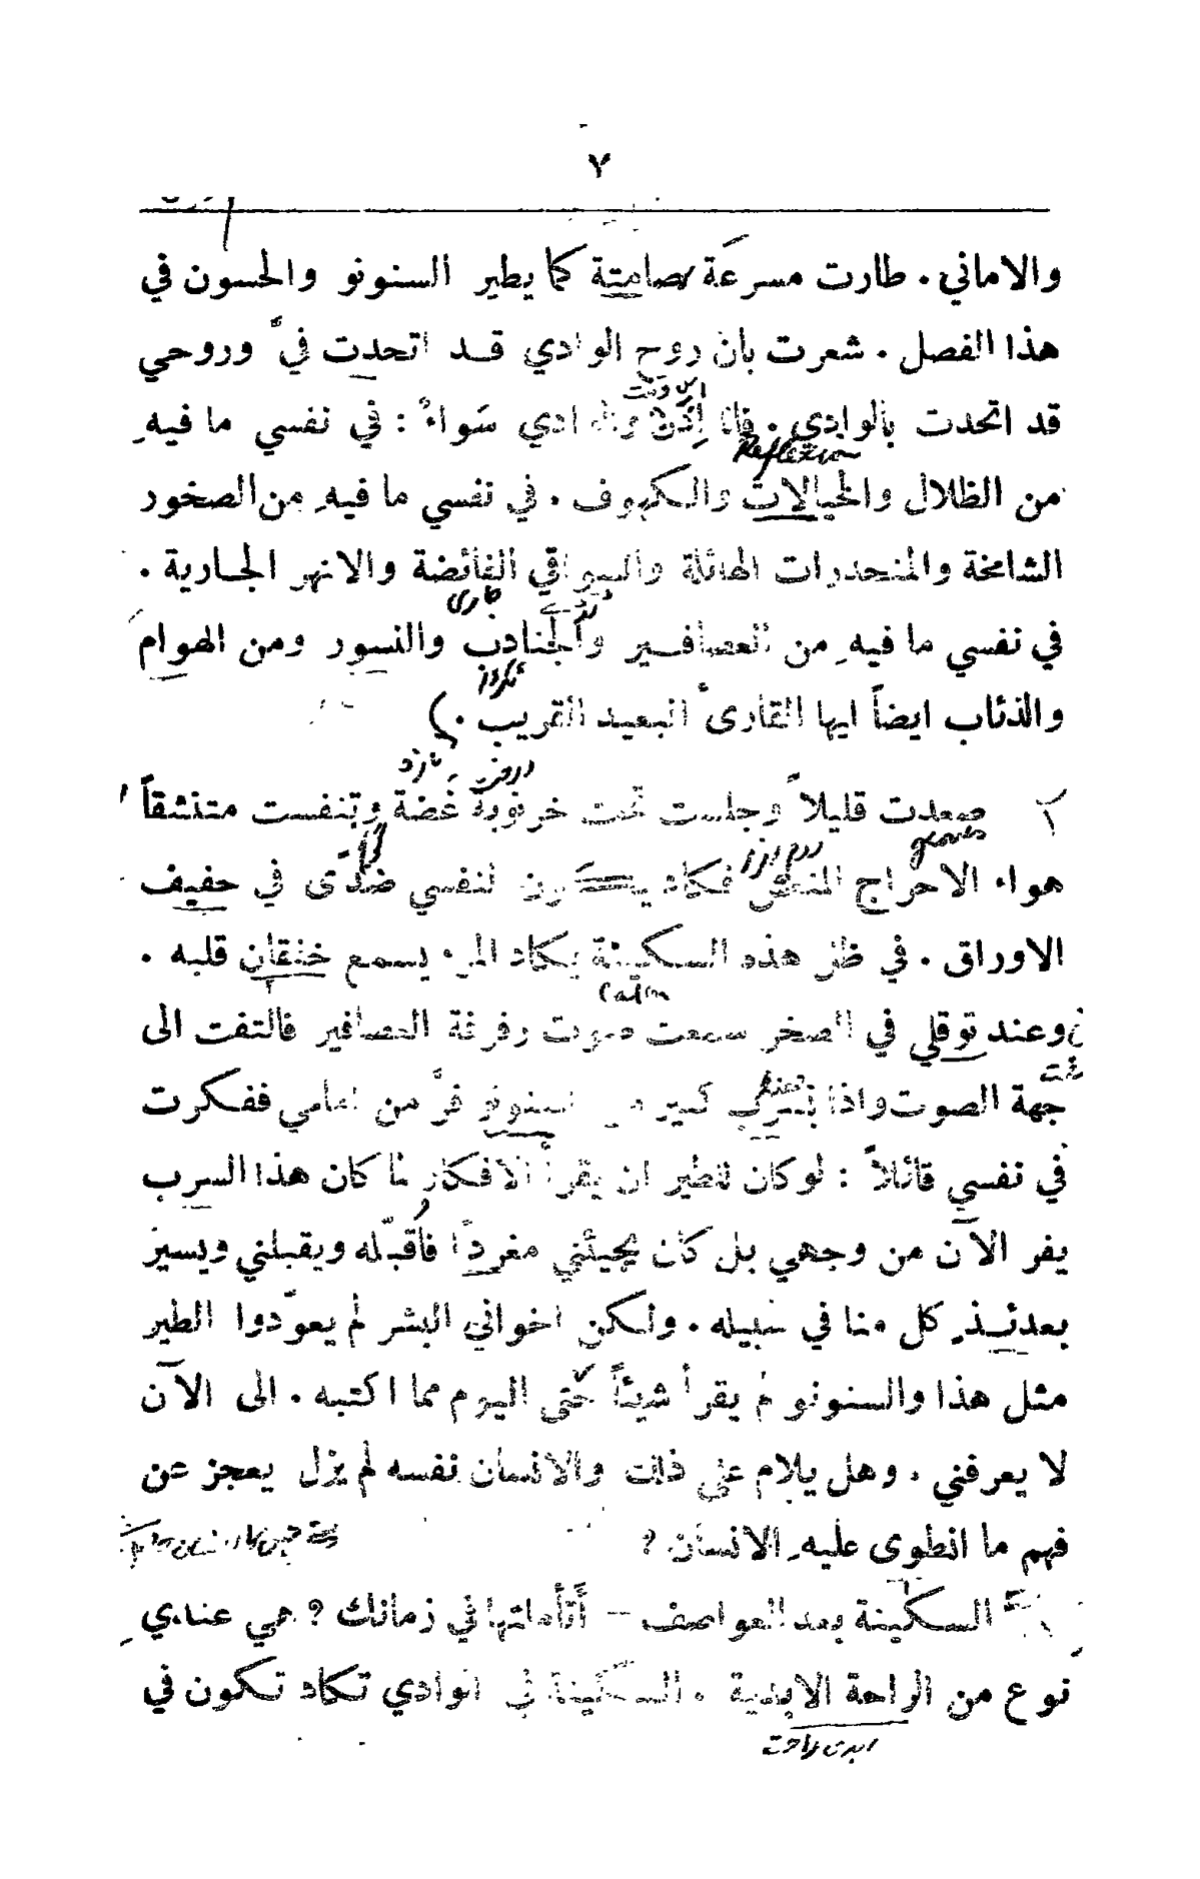 ٧
والاماني . طارت مسرعَة صامتة كما يطير السنونو والحسون في
هذا الفصل . شعرت بان روح الوادي قد اتحدت فيَّ وروحي
قد اتحدت بالوادي . فانا اذن والوادي سَواءٌ : في نفسي ما فيهِ
Reflexion
من الظلال والخيالات والكهوف . في نفسي ما فيهِ من الصخور
الشامخة والمنحدرات الهائلة والسواقي الفائضة والانهر الجارية .
جاری
في نفسي ما فيهِ من العصافير والجنادب والنسور ومن الهوام
والذئاب ايضاً ايها القارئ البعيد القريب .
صعدت قليلاً وجلست تحت خرنوبة غَضة وتنفست متنشقاً
تازه
هواء الاحراج المنعش فكاد يكون لنفسي صَدًى في حفيف
الاوراق . في ظل هذه السكينة يكاد المرء يسمع خفقان قلبه .
calm
وعند توقلي في الصخر سمعت صوت رفرفة العصافير فالتفت الى
جهة الصوت واذا بسرب كبير من السنونو فرَّ من امامي ففكرت
في نفسي قائلاً : لو كان للطير ان يقرأ الافكار لما كان هذا السرب
يفر الآن من وجهي بل كان يجيئني مغردًا فأُقبّله ويقبلني ويسير
بعدئذٍ كل منا في سبيله . ولكن اخواني البشر لم يعوّدوا الطير
مثل هذا والسنونو لم يقرأ شيئاً حتى اليوم مما اكتبه . الى الآن
لا يعرفني . وهل يلام على ذلك والانسان نفسه لم يزل يعجز عن
فهم ما انطوى عليهِ الانسان ؟
السكينة بعد العواصف — أتأملتها في زمانك ؟ هي عندي
نوع من الراحة الابدية . السكينة في الوادي تكاد تكون في
ابدی راحت